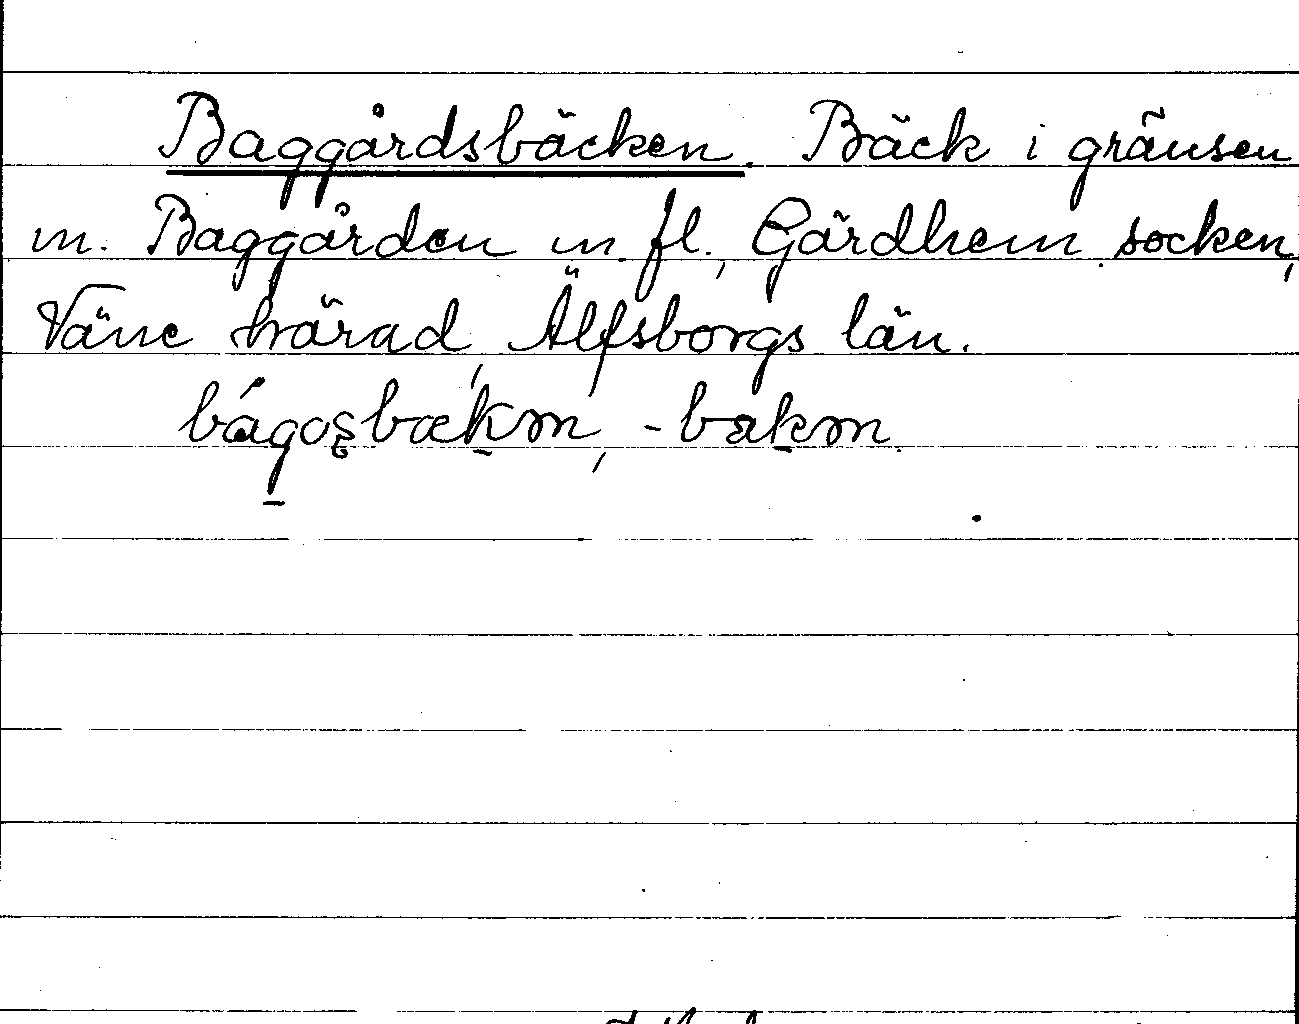 Baggårdsbäcken. Bäck i gränsen
m. Baggården m. fl., Gärdhem socken,
Väne härad, Älfsborgs län.
bágosbækm, -bakm.